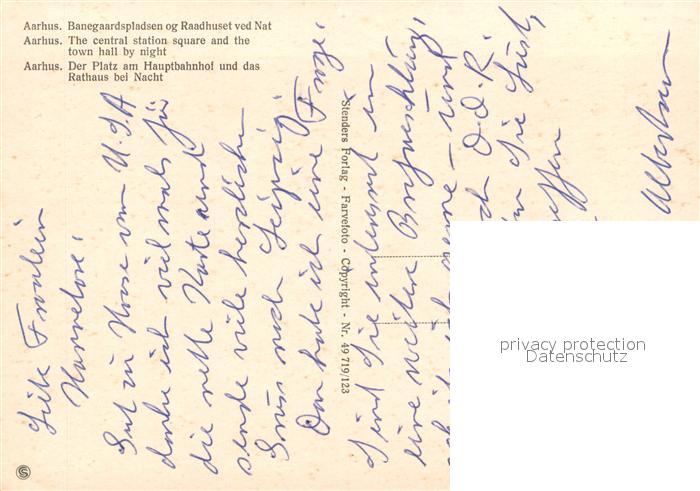 Aarhus. Banegaardspladsen og Raadhuset ved Nat
Aarhus. The central station square and the
town hall by night
Aarhus. Der Platz am Hauptbahnhof und das
Rathaus bei Nacht
Stenders Forlag - Farvefoto - Copyright - Nr. 49 719/123
Liebe Fraulein
Hannelore.
Gut zu Hause vom U.S.A
danke ich vielmals für
die nette Karte und
sende viele herzliche
Grüss nach Leipzig.
Dan habe ich eine Frage.
Sind Sie interessiert in
eine weitere Briefwechslung,
gerne - und
D.D.R.
Sie Lust,
privacy protection
Datenschutz